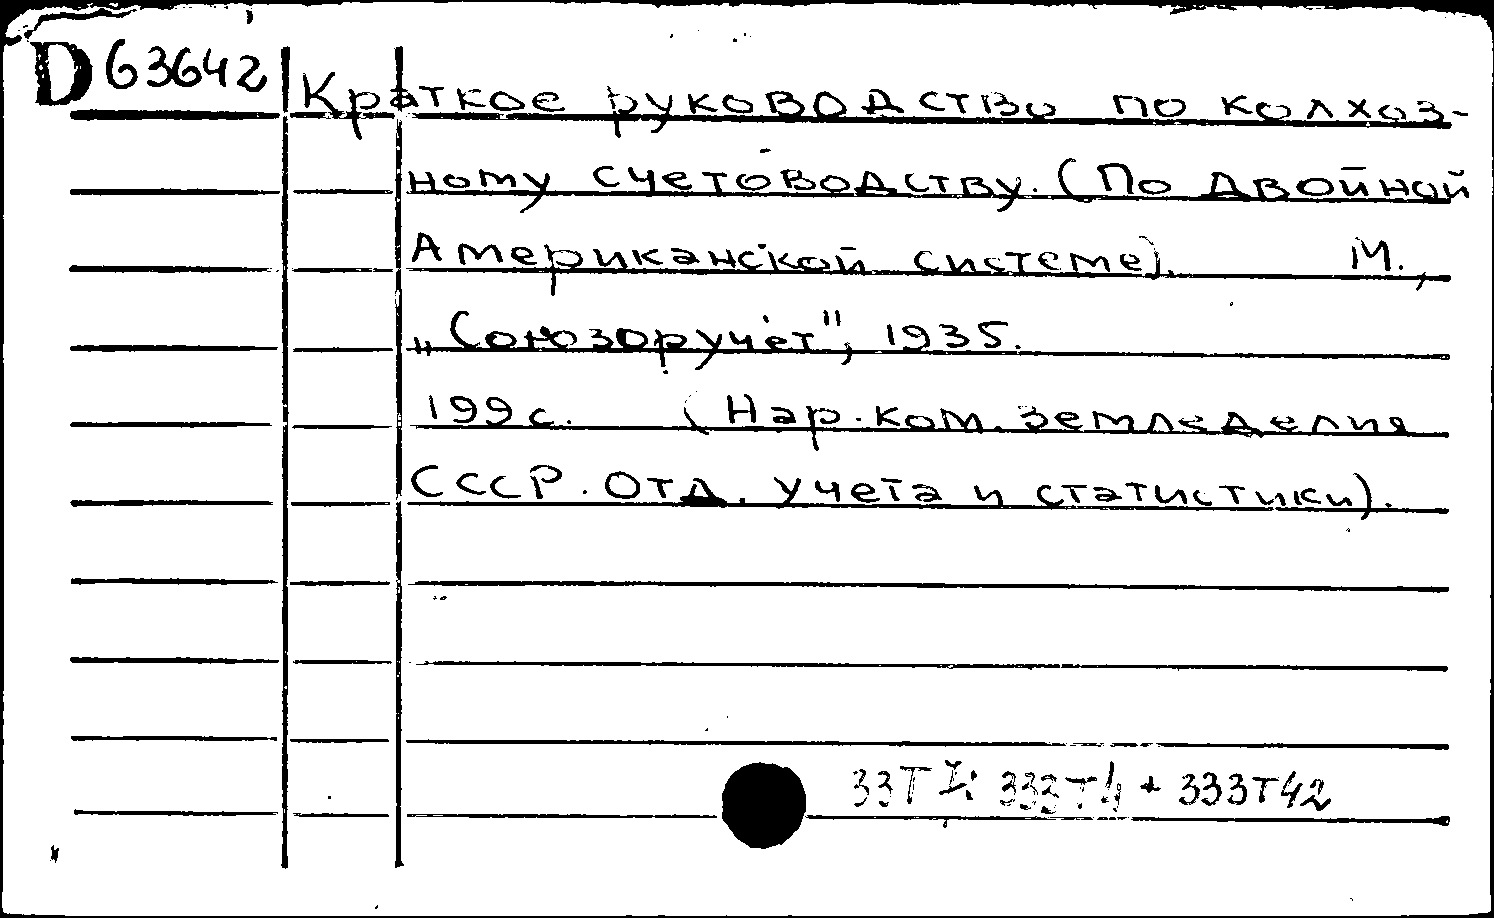 D 63642
Краткое руководство по колхоз-
ному счетоводству. (По двойной
Американской системе). М.,
„Союзоргучет", 1935.
199 с. (Нар. ком. земледелия
СССР. Отд. учета и статистики).
33Т I: 333Т4 + 333Т42